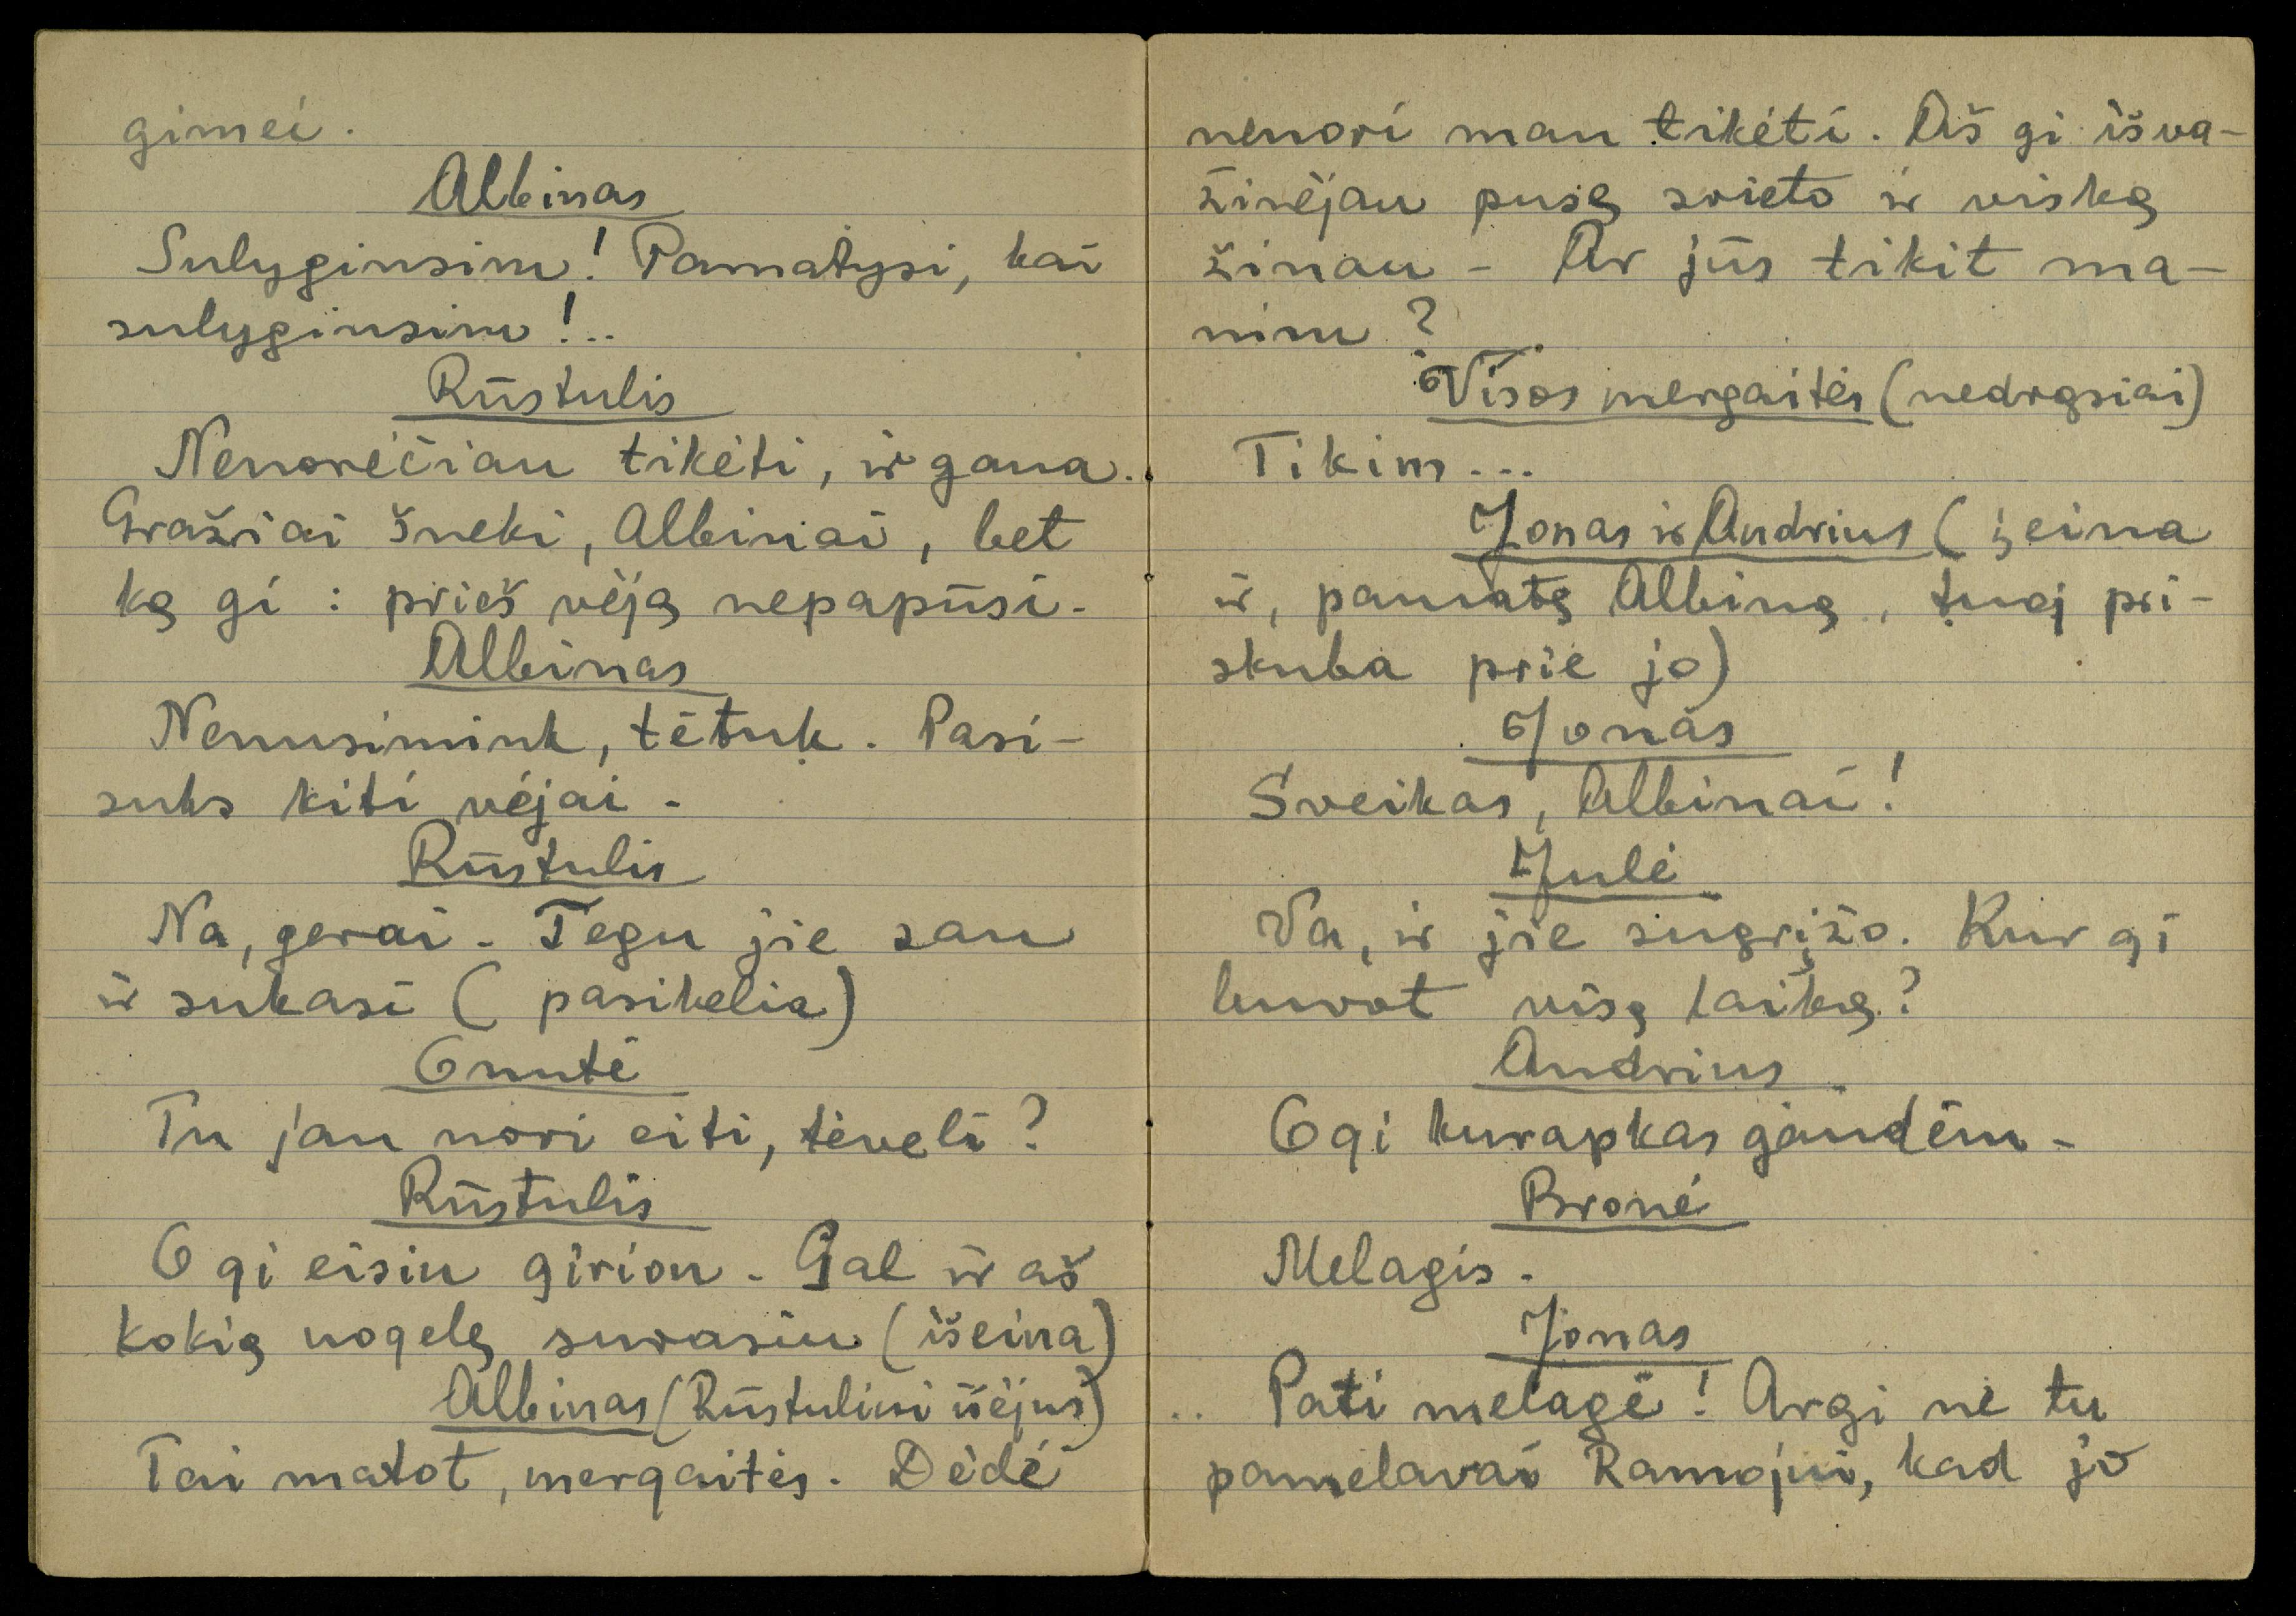 gimei.
Albinas
Sulyginsim! Pamatysi, kai
sulyginsim!..
Rūstulis
Nenorėčiau tikėti, ir gana.
Gražiai šneki, Albinai, bet
ką gi: prieš vėją nepapūsi.
Albinas
Nenusimink, tėtuk. Pasi-
suks kiti vėjai.
Rūstulis
Na, gerai. Tegu jie sau
ir sukasi (pasikelia)
Onutė
Tu jau nori eiti, tėveli?
Rūstulis
O gi eisiu girion. Gal ir aš
kokią uogelę surasiu (išeina)
Albinas (Rūstuliui išėjus)
Tai matot, mergaitės. Dėdė
nenori man tikėti. Aš gi išva-
žinėjau pusę svieto ir viską
žinau - Ar jūs tikit ma-
nim?
Visos mergaitės (nedrąsiai)
Tikim...
Jonas ir Andrius (įeina
ir, pamatę Albiną, tuoj pri-
skuba prie jo)
Jonas
Sveikas, Albinai!
Julė
Va, ir jie sugrįžo. Kur gi
buvot visą laiką?
Andrius
O gi kurapkas gaudėm.
Bronė
Melagis.
Jonas
Pati melagė! Argi ne tu
pamelavai Ramojui, kad jo